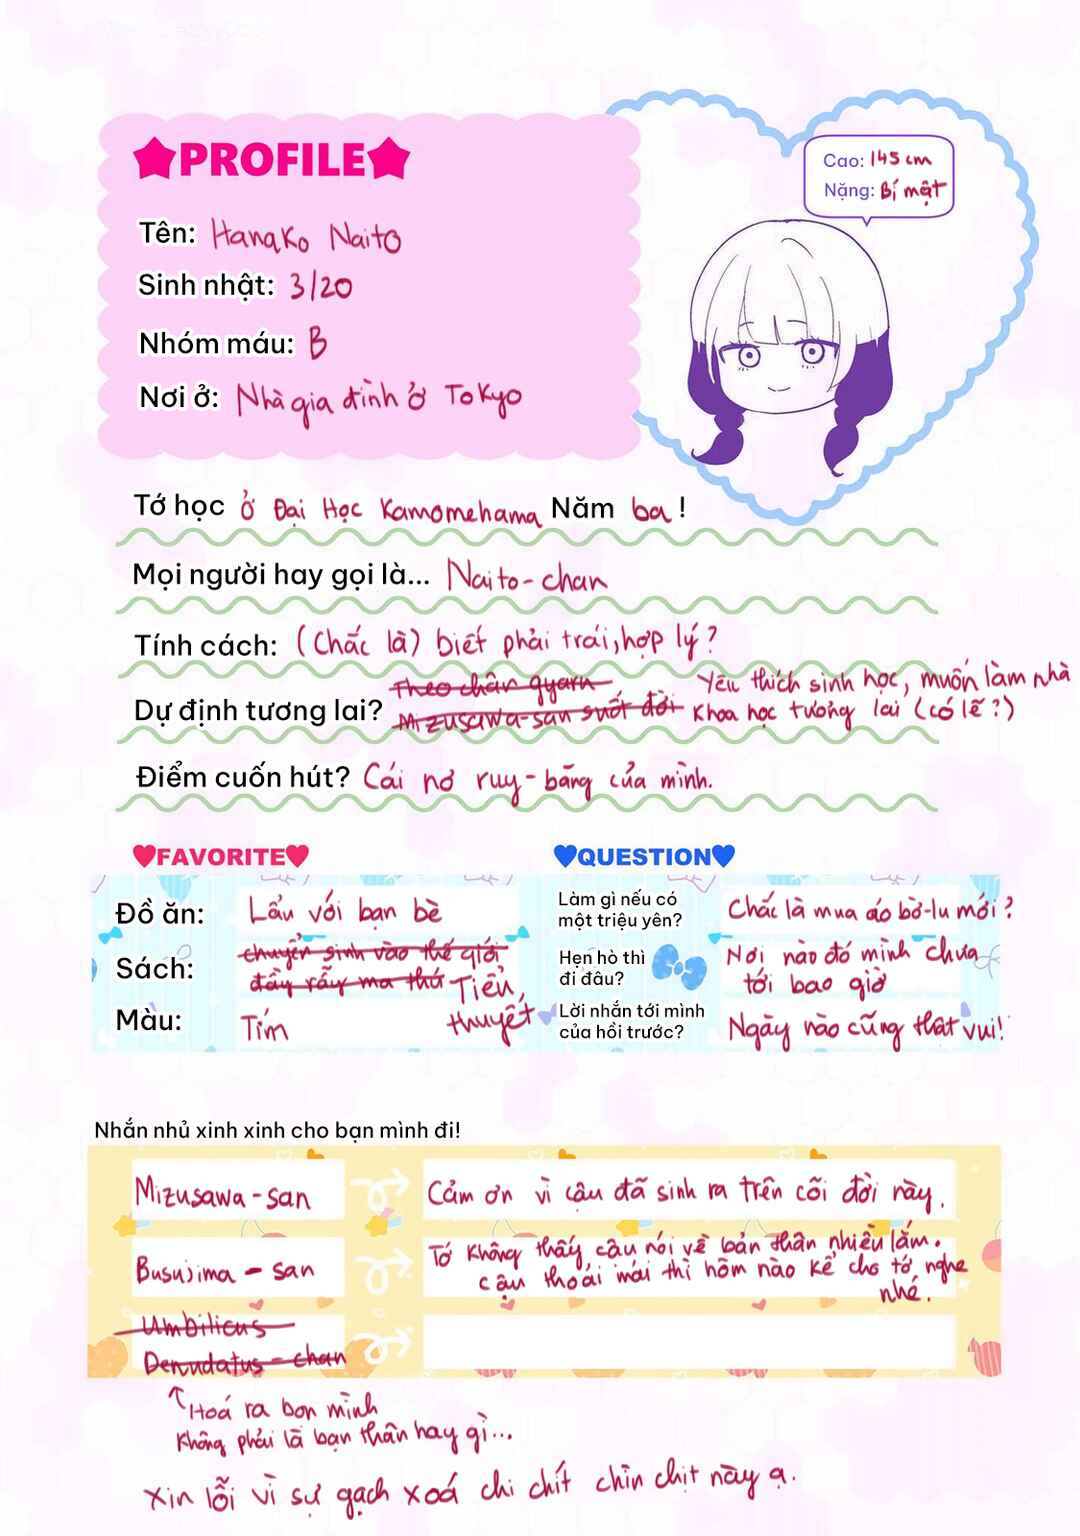 ★PROFILE★
Cao: 145 cm
Nặng: Bí mật
Tên: Hanako Naito
Sinh nhật: 3/20
Nhóm máu: B
Nơi ở: Nhà gia đình ở Tokyo
Tớ học ở Đại Học Kamomehama Năm ba!
Mọi người hay gọi là... Naito-chan
Tính cách: (Chắc là) biết phải trái, hợp lý?
Dự định tương lai? Theo chân gyaru Mizusawa-san suốt đời Yêu thích sinh học, muốn làm nhà
khoa học tương lai (có lẽ?)
Điểm cuốn hút? Cái nơ ruy-băng của mình.
♥FAVORITE♥
Đồ ăn: Lẩu với bạn bè
Sách: chuyển sinh vào thế giới
đầy rẫy ma thú Tiểu
thuyết
Màu: Tím
♥QUESTION♥
Làm gì nếu có
một triệu yên?
Chắc là mua áo bờ-lu mới?
Hẹn hò thì
đi đâu?
Nơi nào đó mình chưa
tới bao giờ
Lời nhắn tới mình
của hồi trước?
Ngày nào cũng thật vui!
Nhắn nhủ xinh xinh cho bạn mình đi!
Mizusawa-san
Cảm ơn vì cậu đã sinh ra trên cõi đời này.
Busujima-san
Tớ không thấy cậu nói về bản thân nhiều lắm.
cậu thoải mái thì hôm nào kể cho tớ nghe
nhé.
Umbilicus
Denudatus-chan
Hoá ra bọn mình
không phải là bạn thân hay gì...
Xin lỗi vì sự gạch xoá chi chít chìn chịt này ạ.